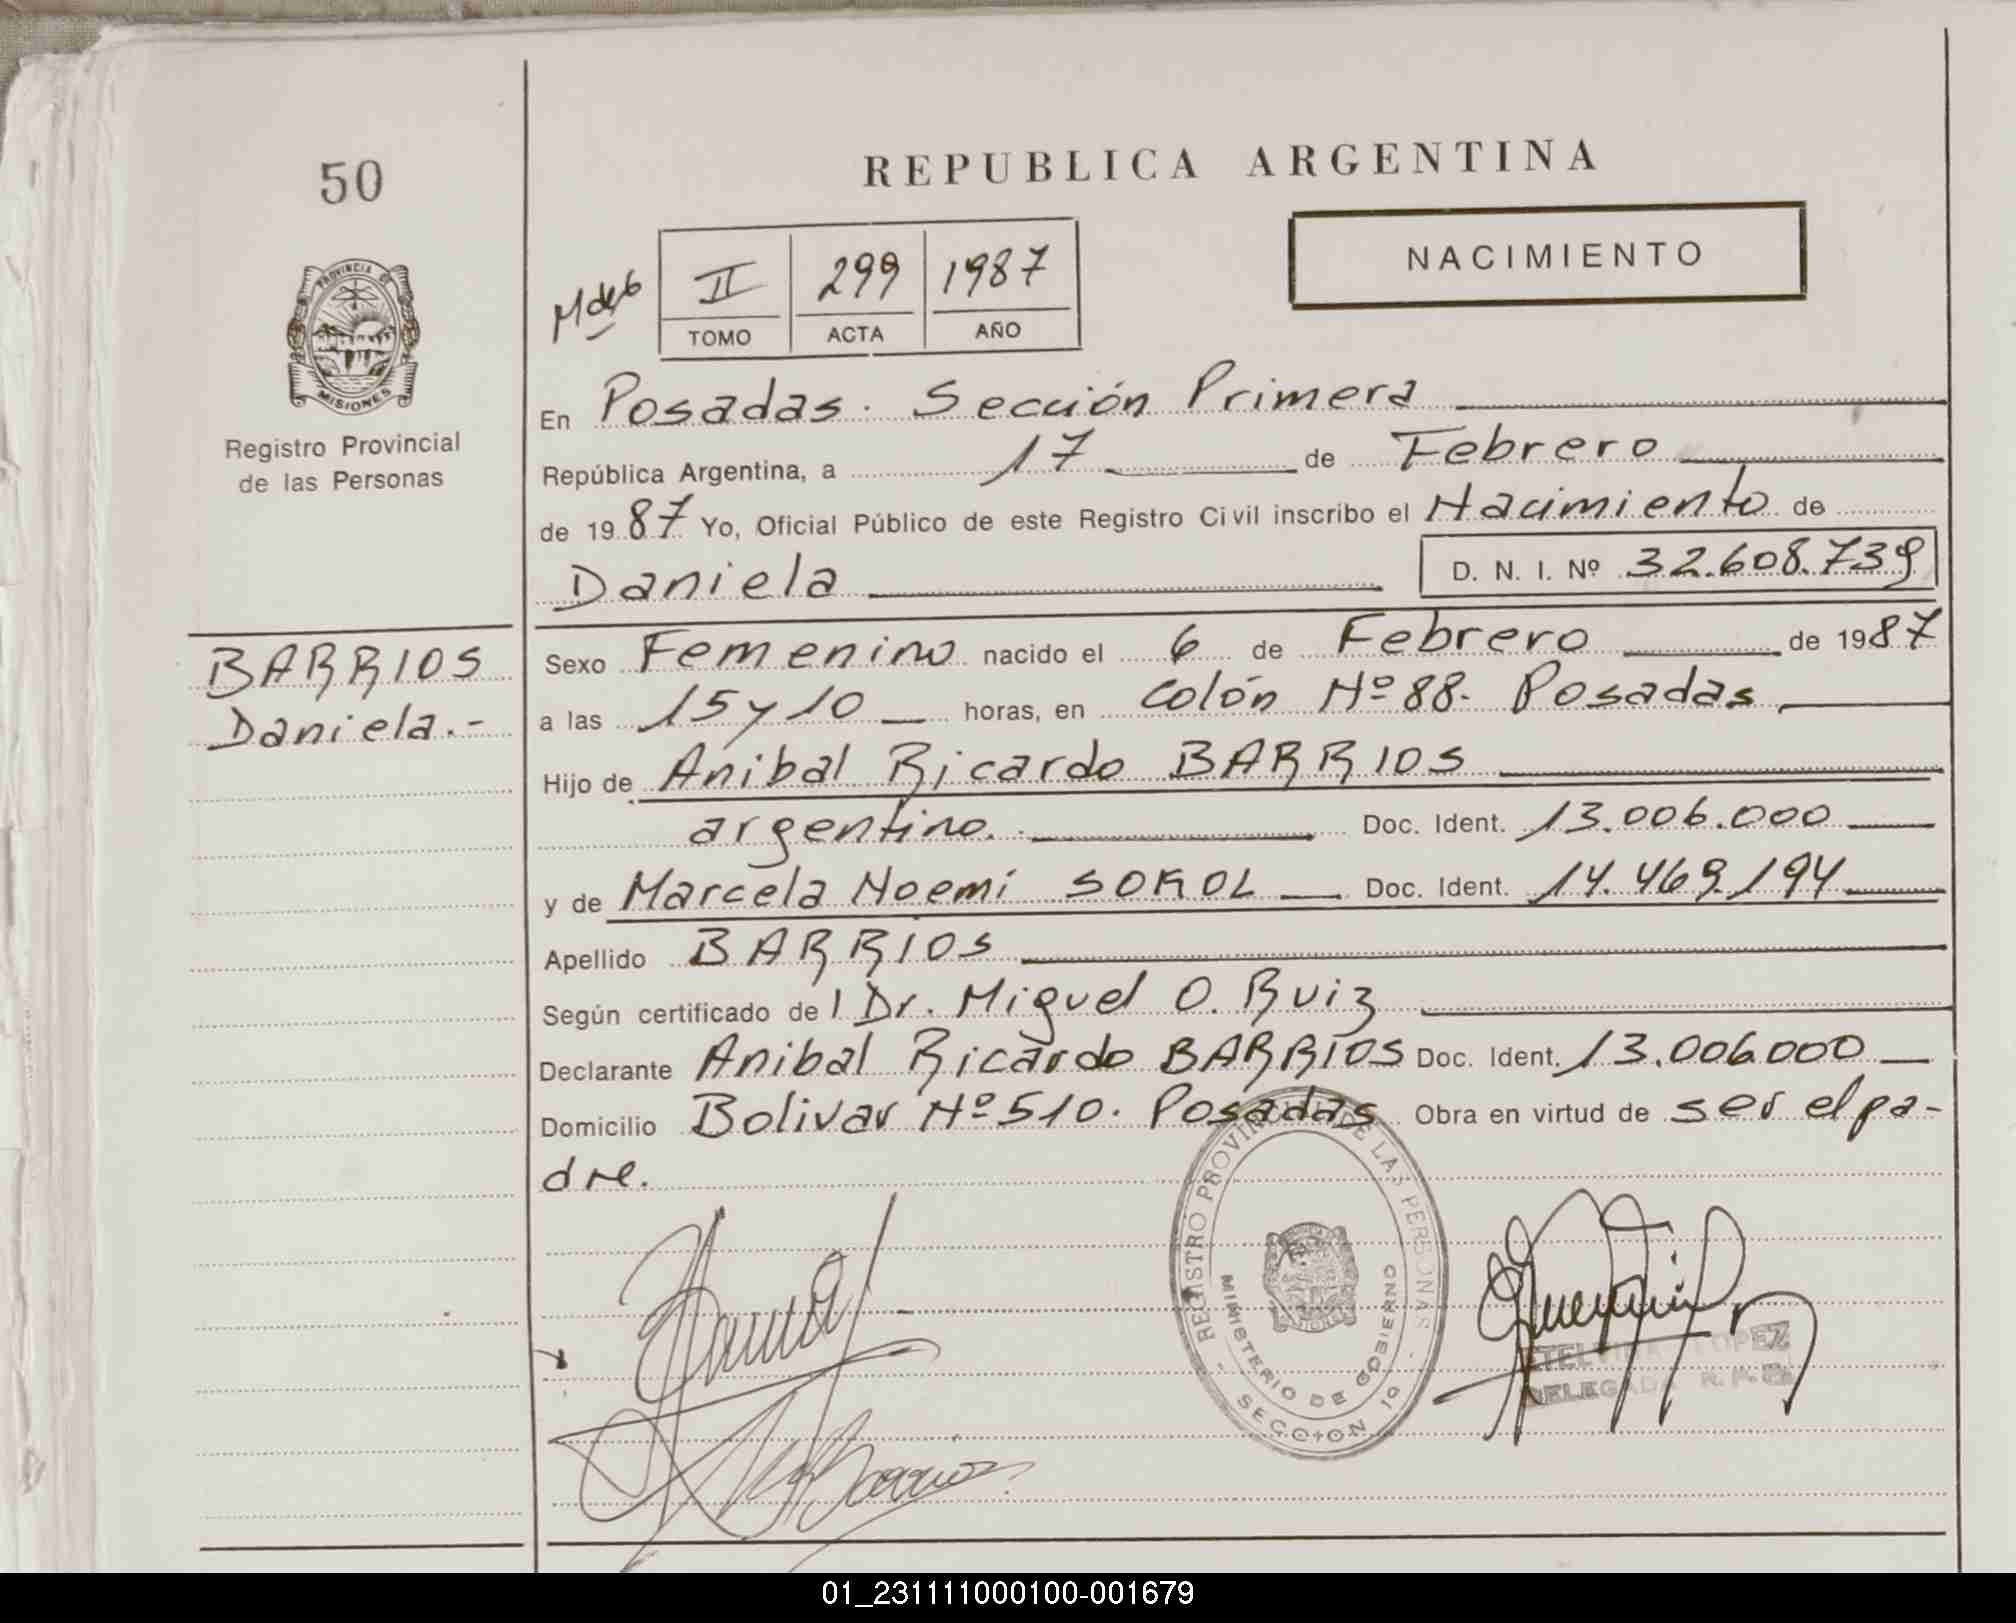 50
REPUBLICA ARGENTINA
NACIMIENTO
II 299 1987
TOMO ACTA AÑO
PROVINCIA DE
MISIONES
Registro Provincial
de las Personas
En Posadas. Sección Primera
República Argentina, a 17 de Febrero
de 1987 Yo, Oficial Público de este Registro Civil inscribo el Nacimiento de
Daniela D. N. I. Nº 32.608.739
BARRIOS
Daniela.-
Sexo Femenino nacido el 6 de Febrero de 1987
a las 15 y 10 horas, en Colón Nº 88. Posadas
Hijo de Anibal Ricardo BARRIOS
argentino. Doc. Ident. 13.006.000
y de Marcela Noemí SOKOL Doc. Ident. 14.469.194
Apellido BARRIOS
Según certificado del Dr. Miguel O. Ruiz
Declarante Anibal Ricardo BARRIOS Doc. Ident. 13.006000
Domicilio Bolivar Nº 510. Posadas Obra en virtud de ser el pa-
dre.
REGISTRO PROVINCIAL DE LAS PERSONAS
MINISTERIO DE GOBIERNO
SECCION 1º
LOPEZ
DELEGADA
01_231111000100-001679